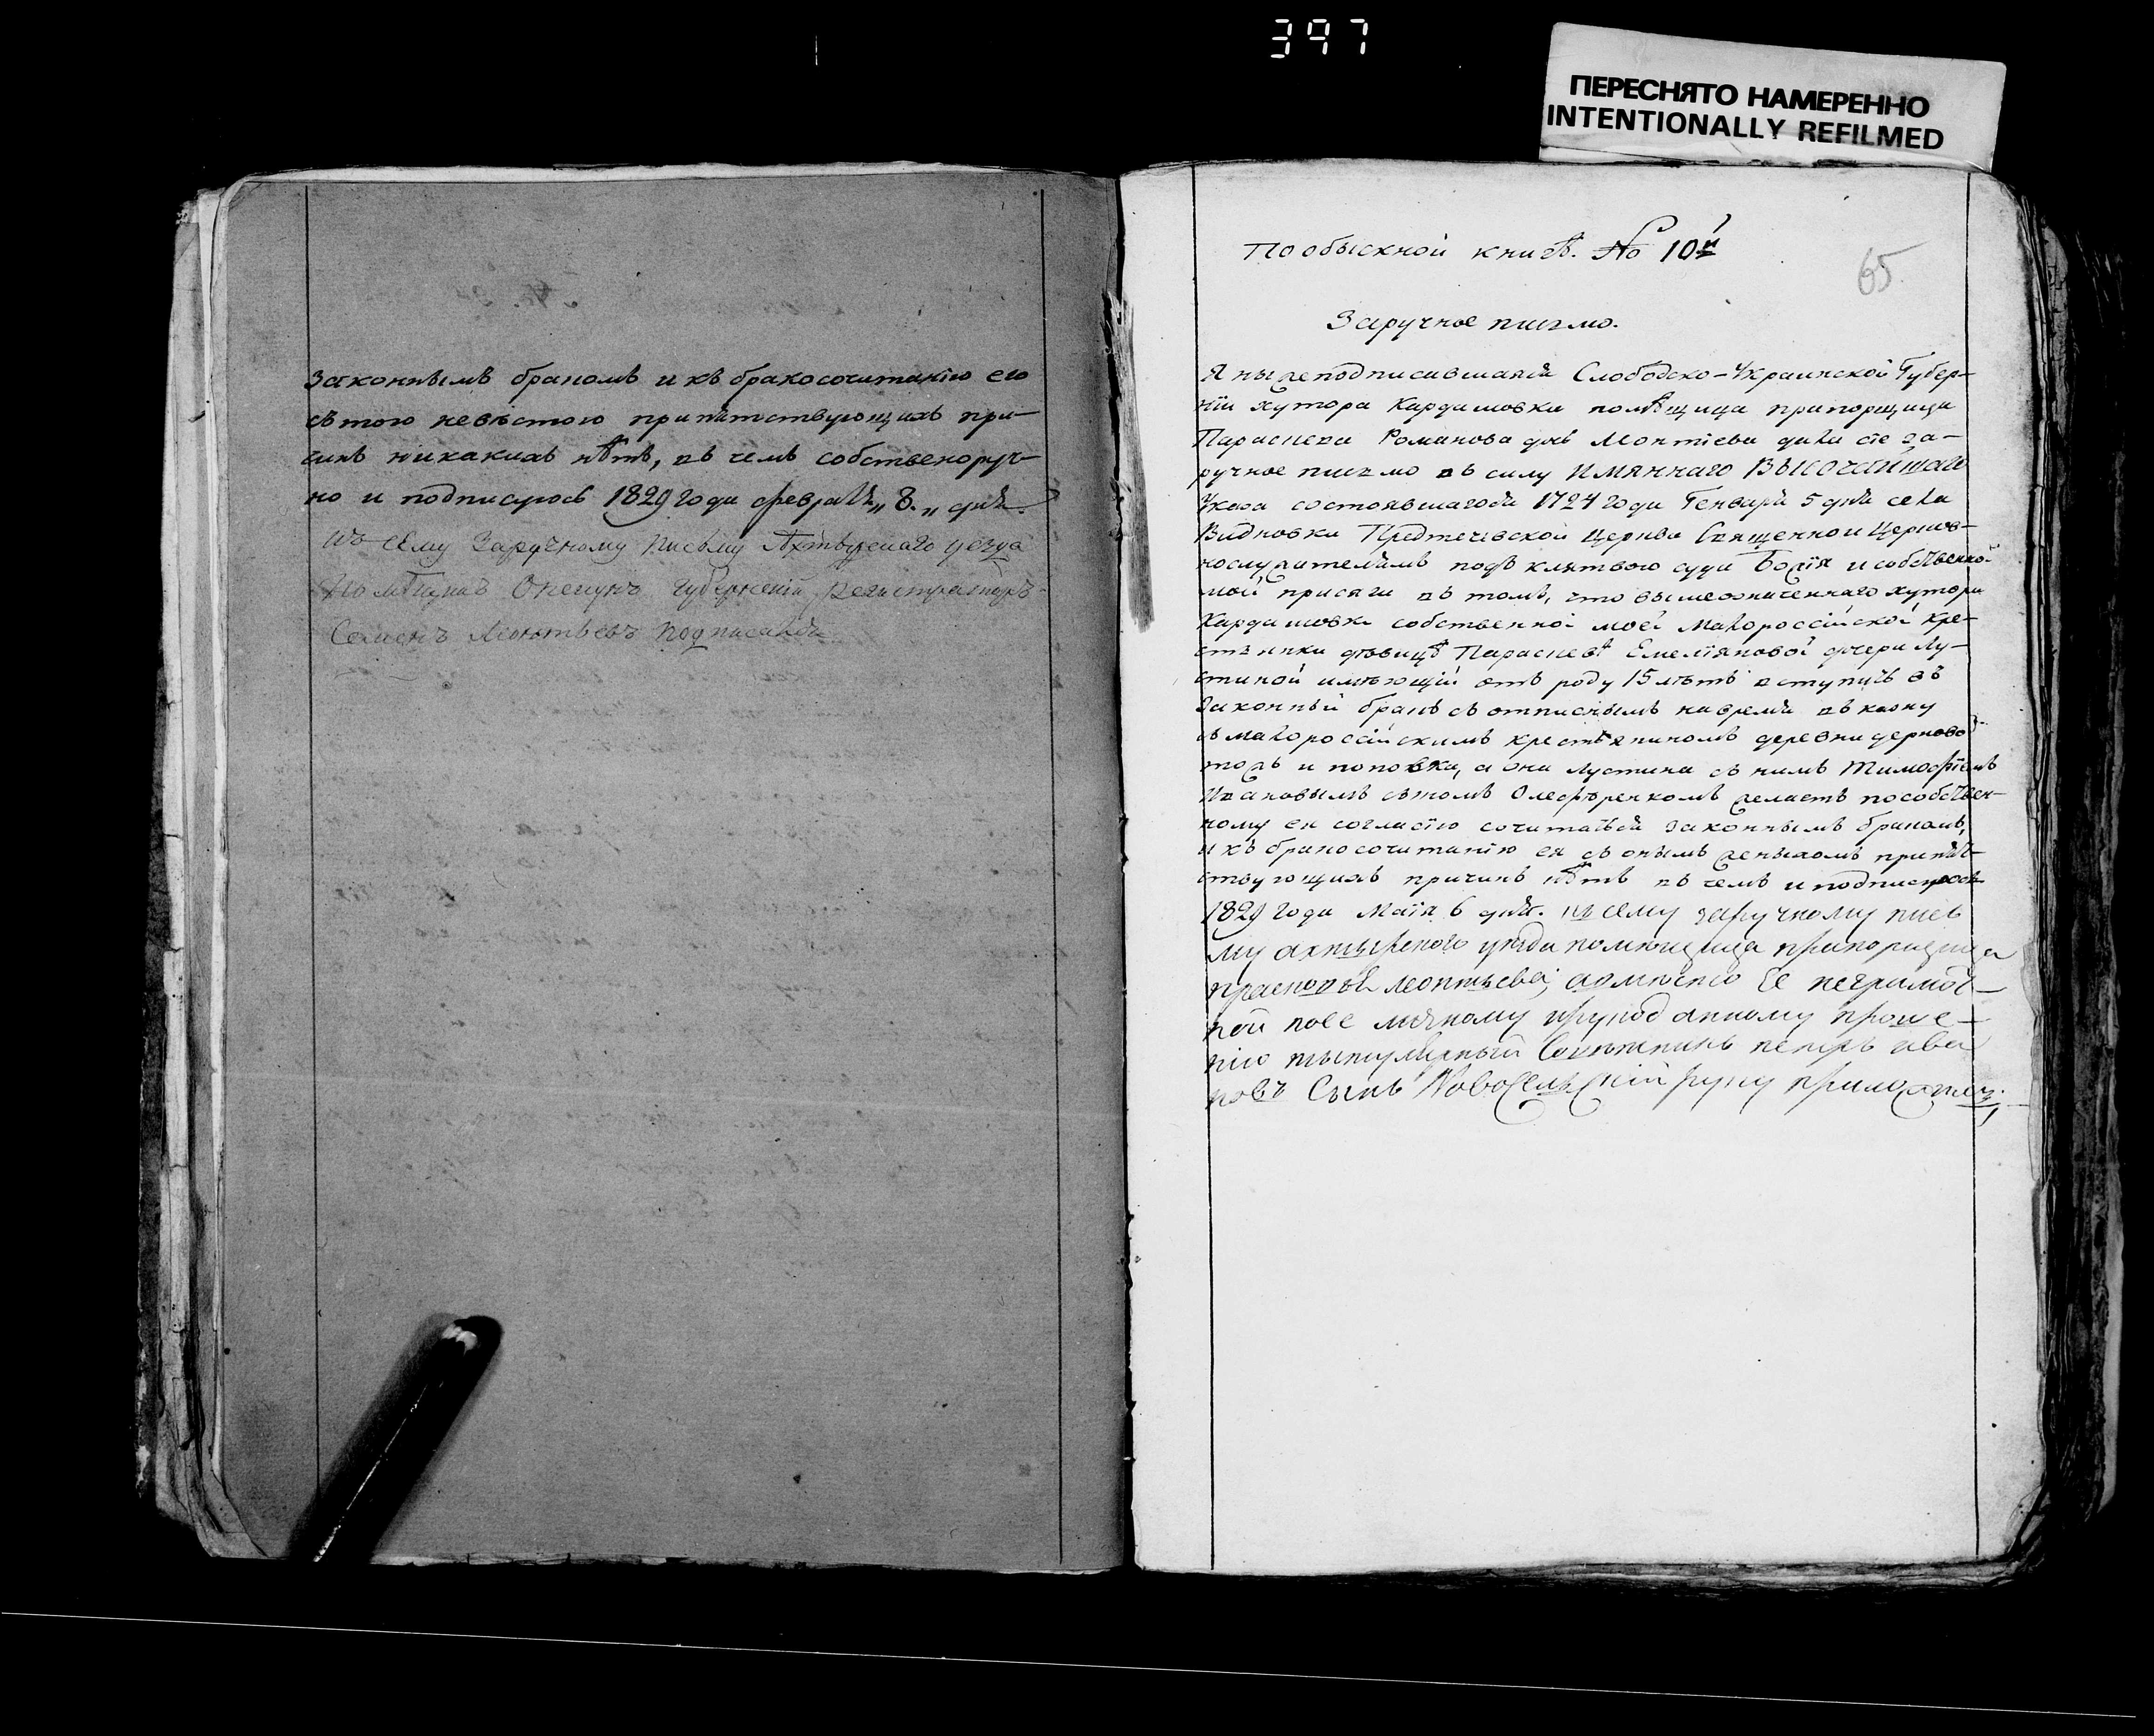 397
ПЕРЕСНЯТО НАМЕРЕННО
INTENTIONALLY REFILMED
законнымъ бракомъ и къ бракосочитанію его
сътою невѣстою припятствующихъ при-
чинъ никакихъ нѣтъ, въ чемъ собственоруч-
но и подписуюсь 1829 года февраля „8.„ дня.
Къ сему Заручному Письму Ахтырскаго уезда
Опекунъ Губернский Регистраторъ
Семенъ Леонтьевъ Подписался
По обыскной книгѣ. № 10й
65
Заручное писмо.
Я нижеподписавшаяся Слободско-Украинской Губер-
ніи хутора Кардашовки помѣщица прапорщица
Параскева Романова дчь Леонтіева дала сіе за-
ручное писмо въ силу ИМЯННАГО ВЫСОЧАЙШАГО
Указа состоявшагося 1724 года Генваря 5 дня села
Видновки Предтечевской Церкви Священной Церков-
нослужителямъ подъ клятвою суда Божія и собственно-
мой присяги въ томъ, что вышеозначенного хутора
Кардашовки собственной моей Малороссійской кре-
стянки дѣвицѣ Параскевѣ Емеліяновой дчери Лу-
стиной имѣющій отъ роду 15 лѣтъ вступить въ
Законный бракъ съ отписнымъ на время въ казну
съ малороссійскимъ крестяниномъ деревни
тожъ и поповка, а она Лустина съ нимъ Тимофіемъ
Ивановымъ сыномъ Олефѣренкомъ желаетъ пособствен-
ному ея согласію сочитаться законнымъ бракомъ,
и къ бракосочитанію ея съ онымъ женихомъ припят-
ствующихъ причинъ нѣтъ въ чемъ и подписуюсь
1829 года Маія 6 дня. Къ сему заручному пись
му ахтырского уезда помющица прапорщица
Леонтьева; ее неграмот-
ной по ее личному прозбе-
нію титулярный Советникъ петръ ива
новъ Сынъ Новоселский руку приложилъ;